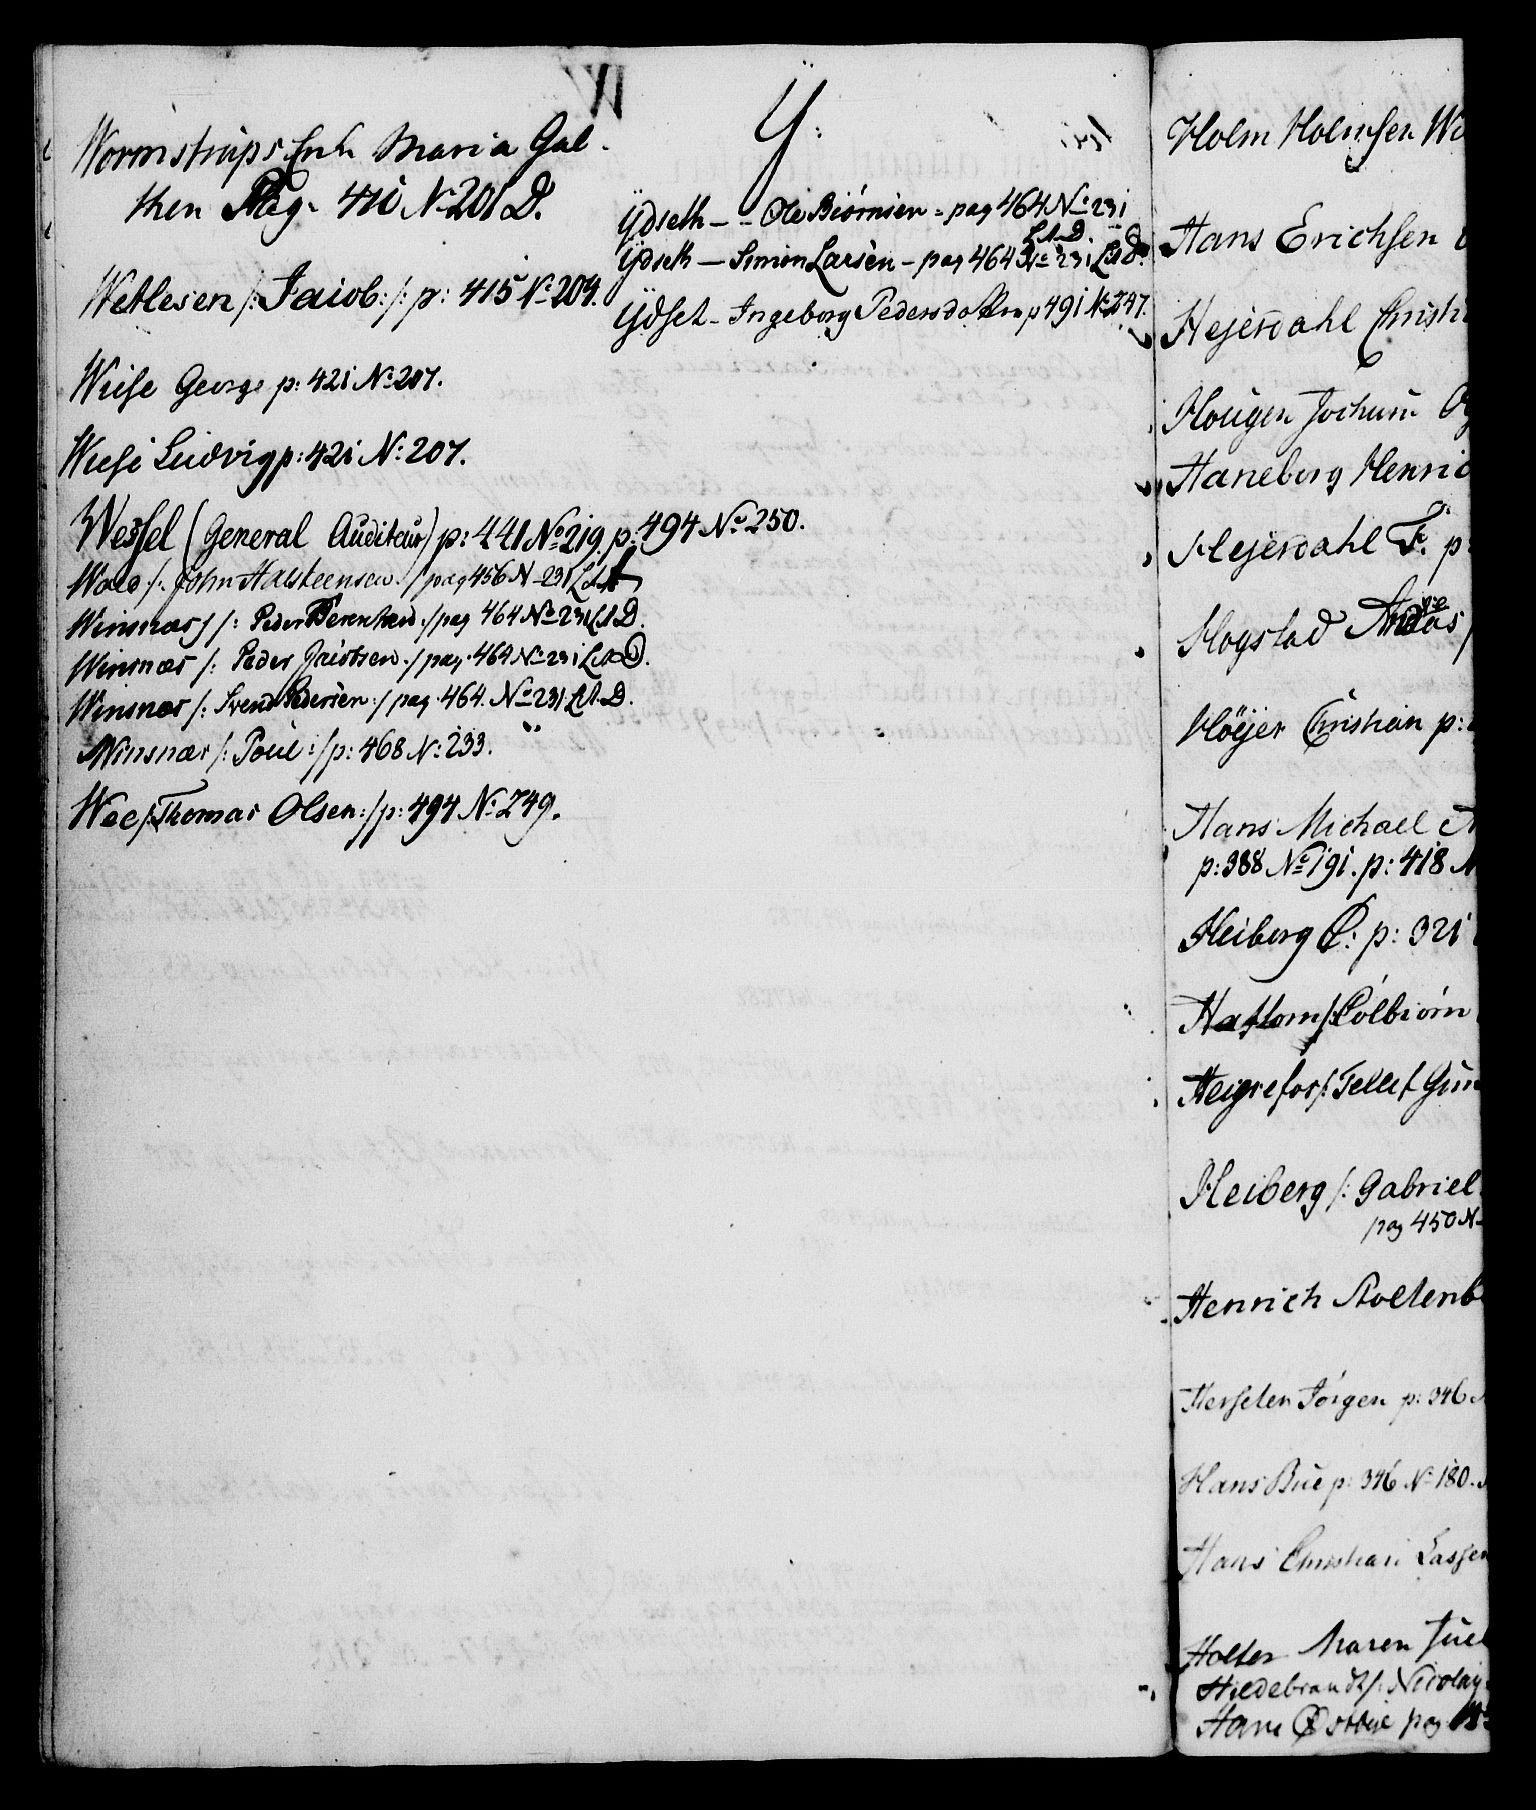 Wormstrups Enk Maria Gal-
then Pag. 411 No 201 D.
Wetlesen /: Jacob :/: p: 415 No 204.
Wiese George p: 421 No 207.
Wiese Ludvig p: 421 No: 207.
Wessel (General Auditeur) p: 441 No 219. p. 494 No. 250.
Wold /: John Halsteensen :/ pag 456 No 231 Lit A
Winsnæs /: Peder Bernhard :/ pag 464 No 231 Lit D.
Winsnæs /: Peder Jacobsen :/ pag. 464 No 231 Lit D.
Winsnæs /: Svend Pedersen :/ pag. 464. No 231 Lit D.
Winsnæs /: Poul :/ p: 468 No: 233.
Wee /: Thomas Olsen :/ p: 494 No. 249.
Y:
Ydseth - - Ole Biörnsen - pag 464 No 231
Lit D.
Ydseth - Simon Larsen - pag 464 No 231 Lit D.
Ydset - Ingeborg Pedersdotter p 491 No 247.
Holm Holmsen
Hans Erichsen
Hejerdahl Christi
Hougen Jochum
Haneborg Henric
Hejerdahl F. p:
Hogstad Andas
Höyer Christian p:
Hans Michael
p: 388 No 191. p: 418 N
Heiberg C: p: 321
Hatlom /: Colbiörn
Heigrefos /: Tellef Gun
Heiberg /: Gabriel
pag 450 N
Henrich Stoltenb
Hersleten Jörgen p: 346
Hans Bue p: 346 No 180.
Hans Christian Lassen
Holter Maren Juel
Hildebrandt /: Nicolay
Hans Östbye pag